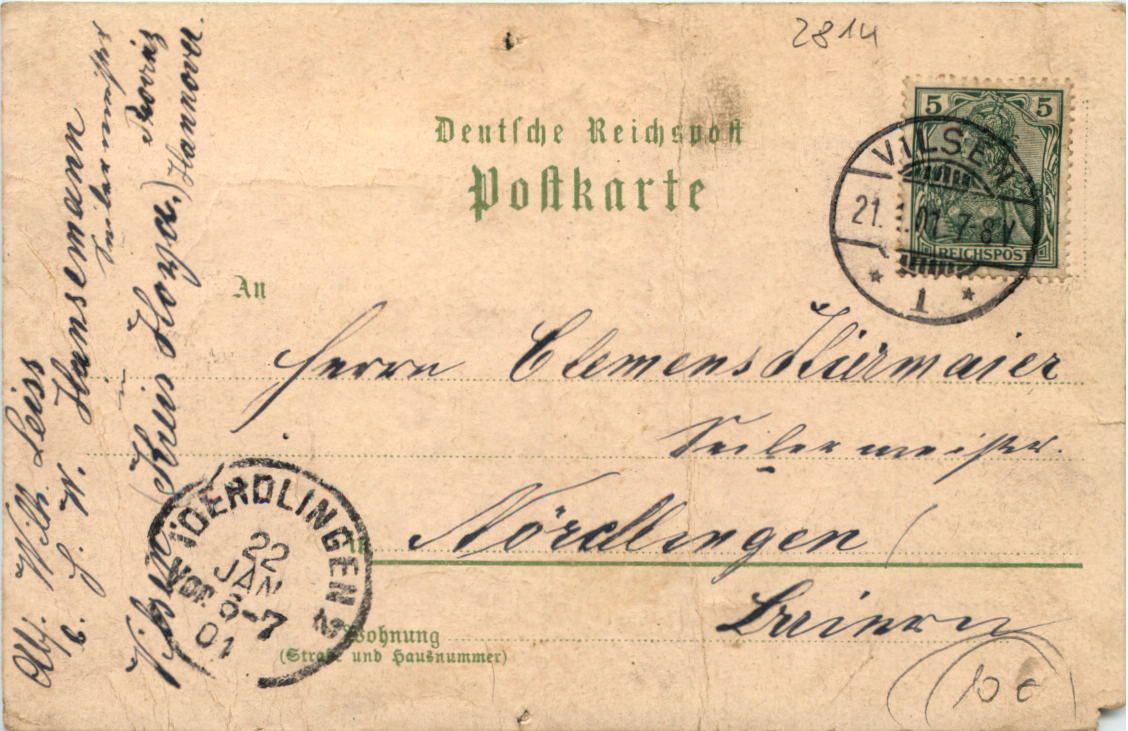 2814
Deutsche Reichspost
Postkarte
5 5
REICHSPOST
VILSEN
21. 1.01 7-8V
* 1 *
An
Herrn Clemens Hürmaier
Seilermeister.
Nördlingen
Baiern
Wohnung
(Straße und Hausnummer)
NOERDLINGEN 2
22
JAN
Vor. 6-7
01
Abs. Wilh. Leiss
b. H. W. Hansemann
Seilermeister
Vilsen (Kreis Hoya.)
Provinz
Hannover.
10 €